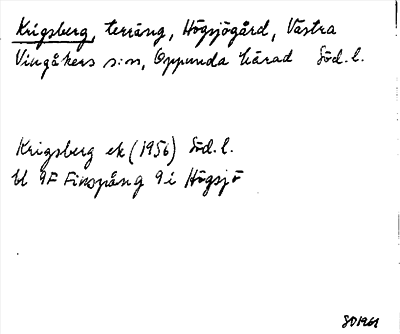 Krigsberg, terräng, Högsjögård, Västra
Vingåkers s:n, Oppunda härad Söd. l.
Krigsberg ek (1956) Söd. l.
bl 9F Finspång 9i Högsjö
SD1961